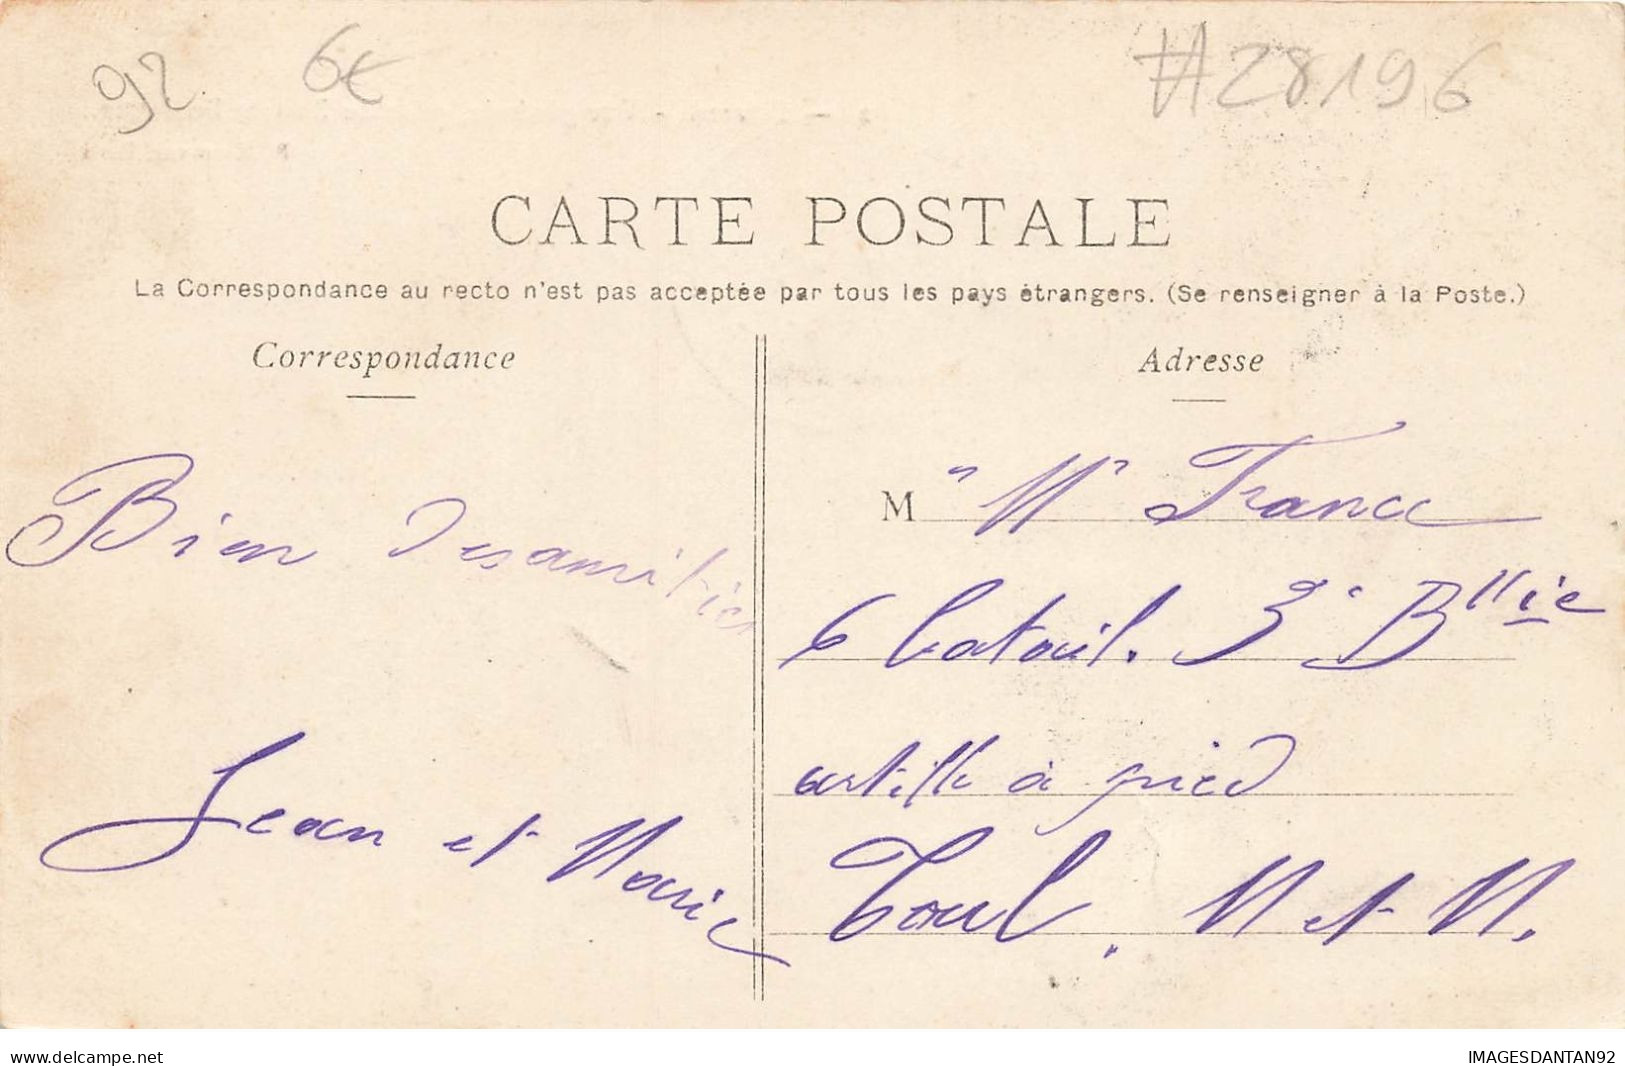 92 6€ #28196
CARTE POSTALE
La Correspondance au recto n'est pas acceptée par tous les pays étrangers. (Se renseigner à la Poste.)
Correspondance
Bien des amitiés
Jean et Marie
Adresse
M "M" France
6 Bataill. 3e Bllie
artille à pied
Toul. M et M.
delcampe.net
IMAGESDANTAN92